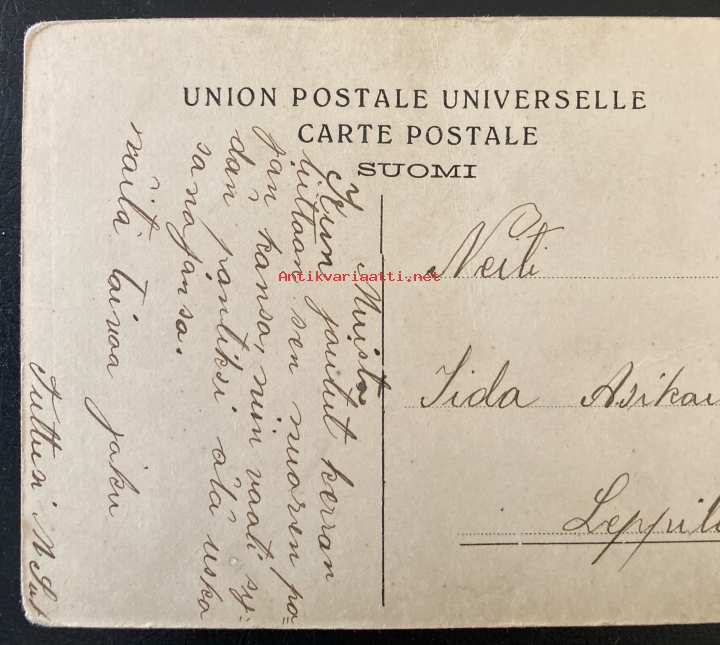 UNION POSTALE UNIVERSELLE
CARTE POSTALE
SUOMI
Muista
Kun jouilut kerran
liittoon sen nuoren po=
jan kansa, niin vaati sy=
dän pantiksi älä uska
sanojansa.
toivoo
Tuttusi
Neiti
Iida Asikai
Leppil
Antikvariaatti.net